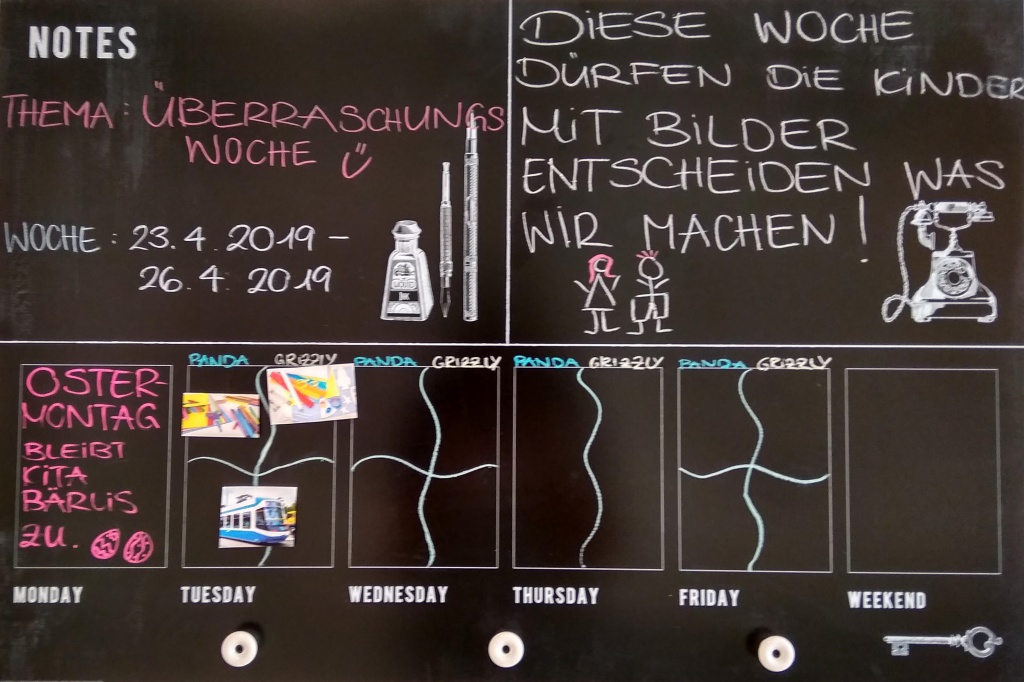 NOTES
THEMA: ÜBERRASCHUNGS
WOCHE
WOCHE: 23.4.2019 –
26.4.2019
DIESE WOCHE
DÜRFEN DIE KINDER
MIT BILDER
ENTSCHEIDEN WAS
WIR MACHEN!
INK
OSTER-
MONTAG
BLEIBT
KITA
BÄRLIS
ZU.
PANDA GRIZZLY PANDA GRIZZLY PANDA GRIZZLY PANDA GRIZZLY
MONDAY TUESDAY WEDNESDAY THURSDAY FRIDAY WEEKEND